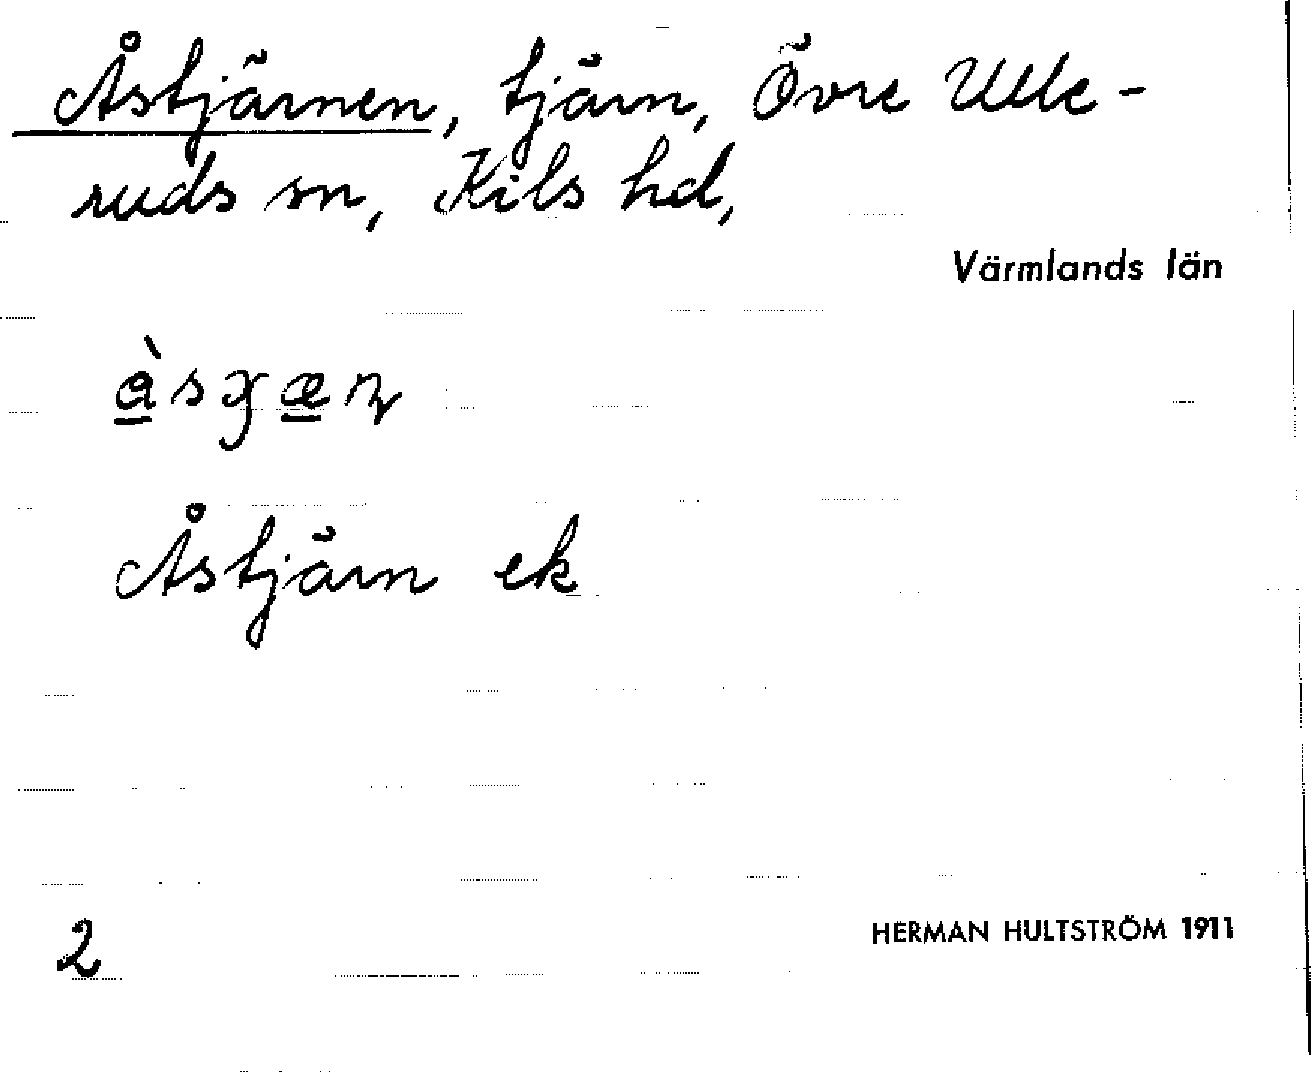 Åstjärnen, tjärn, Övre Ulle-
ruds sn, Kils hd,
Värmlands län
Åstjärn ek
2
HERMAN HULTSTRÖM 1911